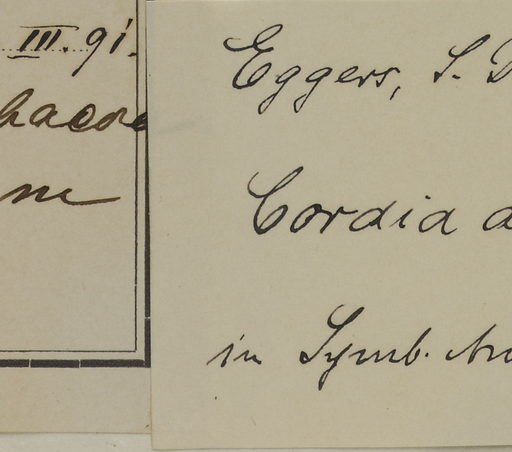 III. 91.
Eggers, S. D
Cordia a
in Symb. An